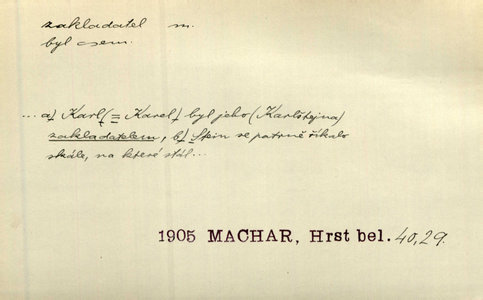 zakladatel m.
byl jsem.
... a) Karl (= Karel) byl jeho (Karlštejna)
zakladatelem, b) Štein se patrně říkalo
skále, na které stál...
1905 MACHAR, Hrst bel. 40,29.